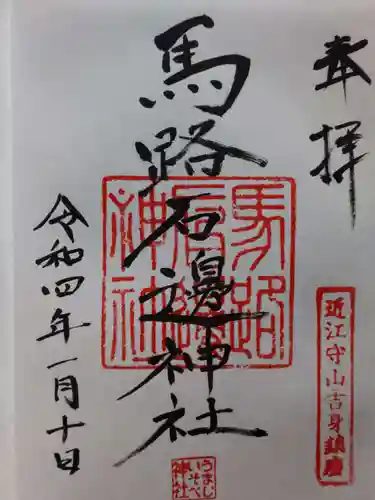 奉拝
馬路石邊神社
令和四年一月十日
馬路
石邊
神社
近江守山吉身鎮座
うまじ
いそべ
神社